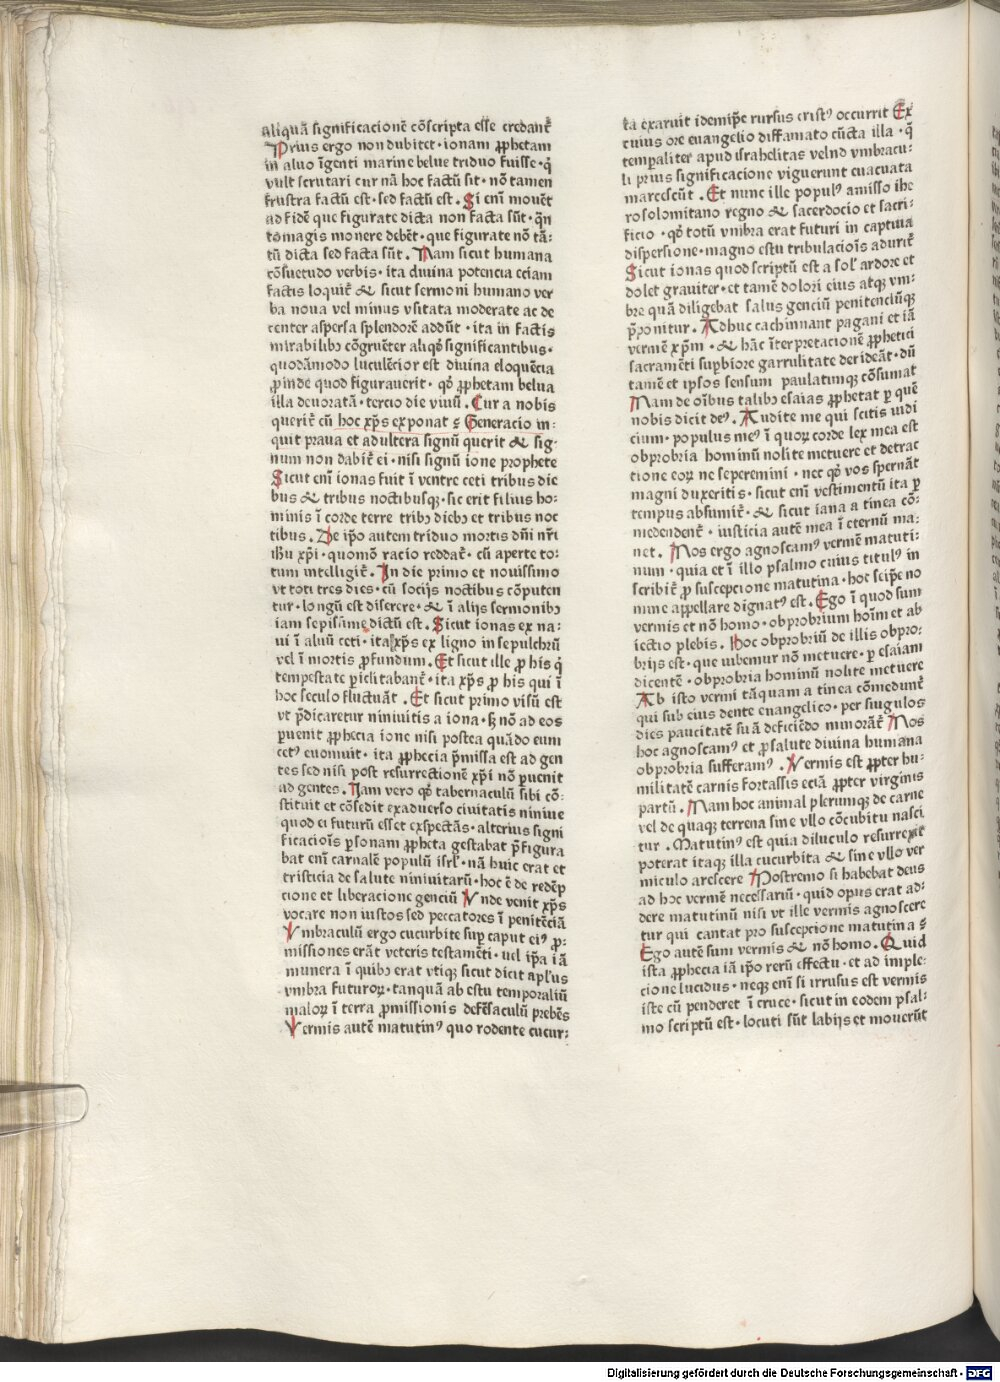 aliquā significacionē cōscripta esse credant᷑
Prius ergo non dubitet · ionam ꝓphetam
in aluo īgenti marine belue triduo fuisse · q̇
vult scrutari cur nā hoc factū sit · nō tamen
frustra factū est · sed factū est . Si enī mouēt
ad fidē que figurate dicta non facta sūt · q̄n
tomagis monere debēt · que figurate nō tā:
tū dicta sed facta sūt . Nam sicut humana
cōsuetudo verbis · ita diuina potencia eciam
factis loquit᷑ & sicut sermoni humano ver
ba noua vel minus vsitata moderate ac de
center aspersa splendorē addūt · ita in factis
mirabilibꝫ cōgruēter aliqͦ significantibus ·
quodāmodo luculēcior est diuina eloquēcia
ꝓinde quod figurauerit · qͦ ꝓphetam belua
illa deuoratā · tercio die viuū . Cur a nobis
querit᷑ cū hoc xp̄s exponat ⸵ Generacio in:
quit praua et adultera signū querit & sig:
num non dabit᷑ ei · nisi signū ione prophete
Sicut enī ionas fuit ī ventre ceti tribus die
bus & tribus noctibusqꝫ · sic erit filius ho:
minis ī corde terre tribꝫ diebꝫ et tribus noc
tibus . De ip̄o autem triduo mortis dn̄i nr̄i
ihū xp̄i · quomō racio reddat᷑ · cū aperte to:
tum intelligit᷑ . In die primo et nouissimo
vt toti tres dies · cū socijs noctibus cōputen
tur · longū est diserere · & ī alijs sermonibꝫ
iam sepisāme dictū est . Sicut ionas ex na:
ui ī aluū ceti · ita xp̄s ex ligno in sepulchrū
vel ī mortis ꝓfundum . Et sicut ille ꝓ his q̇
tempestate ꝑiclitabant᷑ · ita xp̄s ꝓ his qui ī
hoc seculo fluctuāt . Et sicut primo visū est
vt p̄dicaretur niniuitis a iona · sꝫ nō ad eos
ꝑuenit ꝓphecia ione nisi postea quādo eum
cetꝰ euomuit · ita ꝓphecia p̄missa est ad gen
tes sed nisi post resurrectionē xp̄i nō ꝑuenit
ad gentes . Nam vero qͦ tabernaculū sibi cō:
stituit et cōsedit exaduerso ciuitatis niniue
quod ei futurū esset exspectās · alterius signi
ficaciois ꝑsonam ꝓpheta gestabat p̄figura
bat enī carnalē populū isrl᷑ · nā huic erat et
tristicia de salute niniuitarū · hoc ē de redēp
cione et liberacione genciū Vnde venit xp̄s
vocare non iustos sed peccatores ī penitēciā
Vmbraculū ergo cucurbite suꝑ caput eiꝰ ꝓ:
missiones erāt veteris testamēti · uel ip̄a iā
munera ī quibꝫ erat vtiqꝫ sicut dicit apl᷑us
vmbra futuroꝝ · tanquā ab estu temporaliū
maloꝝ ī terra ꝓmissionis defēsaculū prebēs
Vermis autē matutinꝰ quo rodente cucur:
ta exaruit idemip̄e rursus cristꝰ occurrit Ex
cuius ore euangelio diffamato cūcta illa · q̄
temꝑaliter apud israhelitas velud vmbracu:
li prius significatione viguerunt euacuata
marcescūt . Et nunc ille populꝰ amisso ihe
rosolomitano regno & sacerdocio et sacri:
ficio · qͦ totū vmbra erat futuri in captiua
dispersione · magno estu tribulaciois adurit᷑
Sicut ionas quod scriptū est a sol᷑ ardore et
dolet grauiter · et tamē dolori eius atqꝫ vm:
bre quā diligebat salus genciū penitenciūqꝫ
p̄ponitur . Adhuc cachinnant pagani et iā
vermē xp̄m · & hāc īterpretacionē ꝓphetici
sacramēti suꝑbiore garrulitate derideāt · dū
tamē et ipsos sensum paulatimqꝫ cōsumat
Nam de oībus talibꝫ esaias ꝓphetat ꝑ quē
nobis dicit deꝰ . Audite me qui scitis iudi
cium · populus meꝰ ī quoꝝ corde lex mea est
obprobria hominū nolite metuere et detrac
tione eoꝝ ne seperemini · nec qͦ vos spernāt
magni duxeritis · sicut enī vestimentū ita ꝑ
tempus absumit᷑ · & sicut lana a tinea cō:
medendent᷑ · iusticia autē mea ī eternū ma:
net . Nos ergo agnoscamꝰ vermē matuti:
num · quia et ī illo psalmo cuius titulꝰ in
scribit᷑ ꝓ suscepcione matutina · hoc seip̄e no
mine appellare dignatꝰ est . Ego ī quod sum
vermis et nō homo · obprobrium hoīm et ab
iectio plebis . Hoc obprobriū de illis obpro:
brijs est · que iubemur nō metuere · ꝑ esaiam
dicentē · obprobria hominū nolite metuere
Ab isto vermi tāquam a tinea cōmedunt᷑
qui sub eius dente euangelico · per singulos
dies paucitatē suā deficiēdo minorāt᷑ Nos
hoc agnoscamꝰ et ꝓsalute diuina humana
obprobria sufferamꝰ . Vermis est ꝓpter hu:
militatē carnis fortassis eciā ꝓpter virginis
partū . Nam hoc animal plerumqꝫ de carne
vel de quaqꝫ terrena sine vllo cōcubitu nasci
tur . Matutinꝰ est quia diluculo resurrexit
poterat itaqꝫ illa cucurbita & sine vllo ver
miculo arescere Postremo si habebat deus
ad hoc vermē necessariū · quid opus erat ad:
dere matutinū nisi vt ille vermis agnoscere
tur qui cantat pro suscepcione matutina ⸵
Ego autē sum vermis & nō homo . Quid
ista ꝓphecia iā ip̄o rerū effectu · et ad imple:
cione lucidus · neqꝫ enī si irrusus est vermis
iste cū penderet ī cruce · sicut in eodem psal:
mo scriptū est · locuti sūt labijs et mouerūt
Digitalisierung gefördert durch die Deutsche Forschungsgemeinschaft - DFG